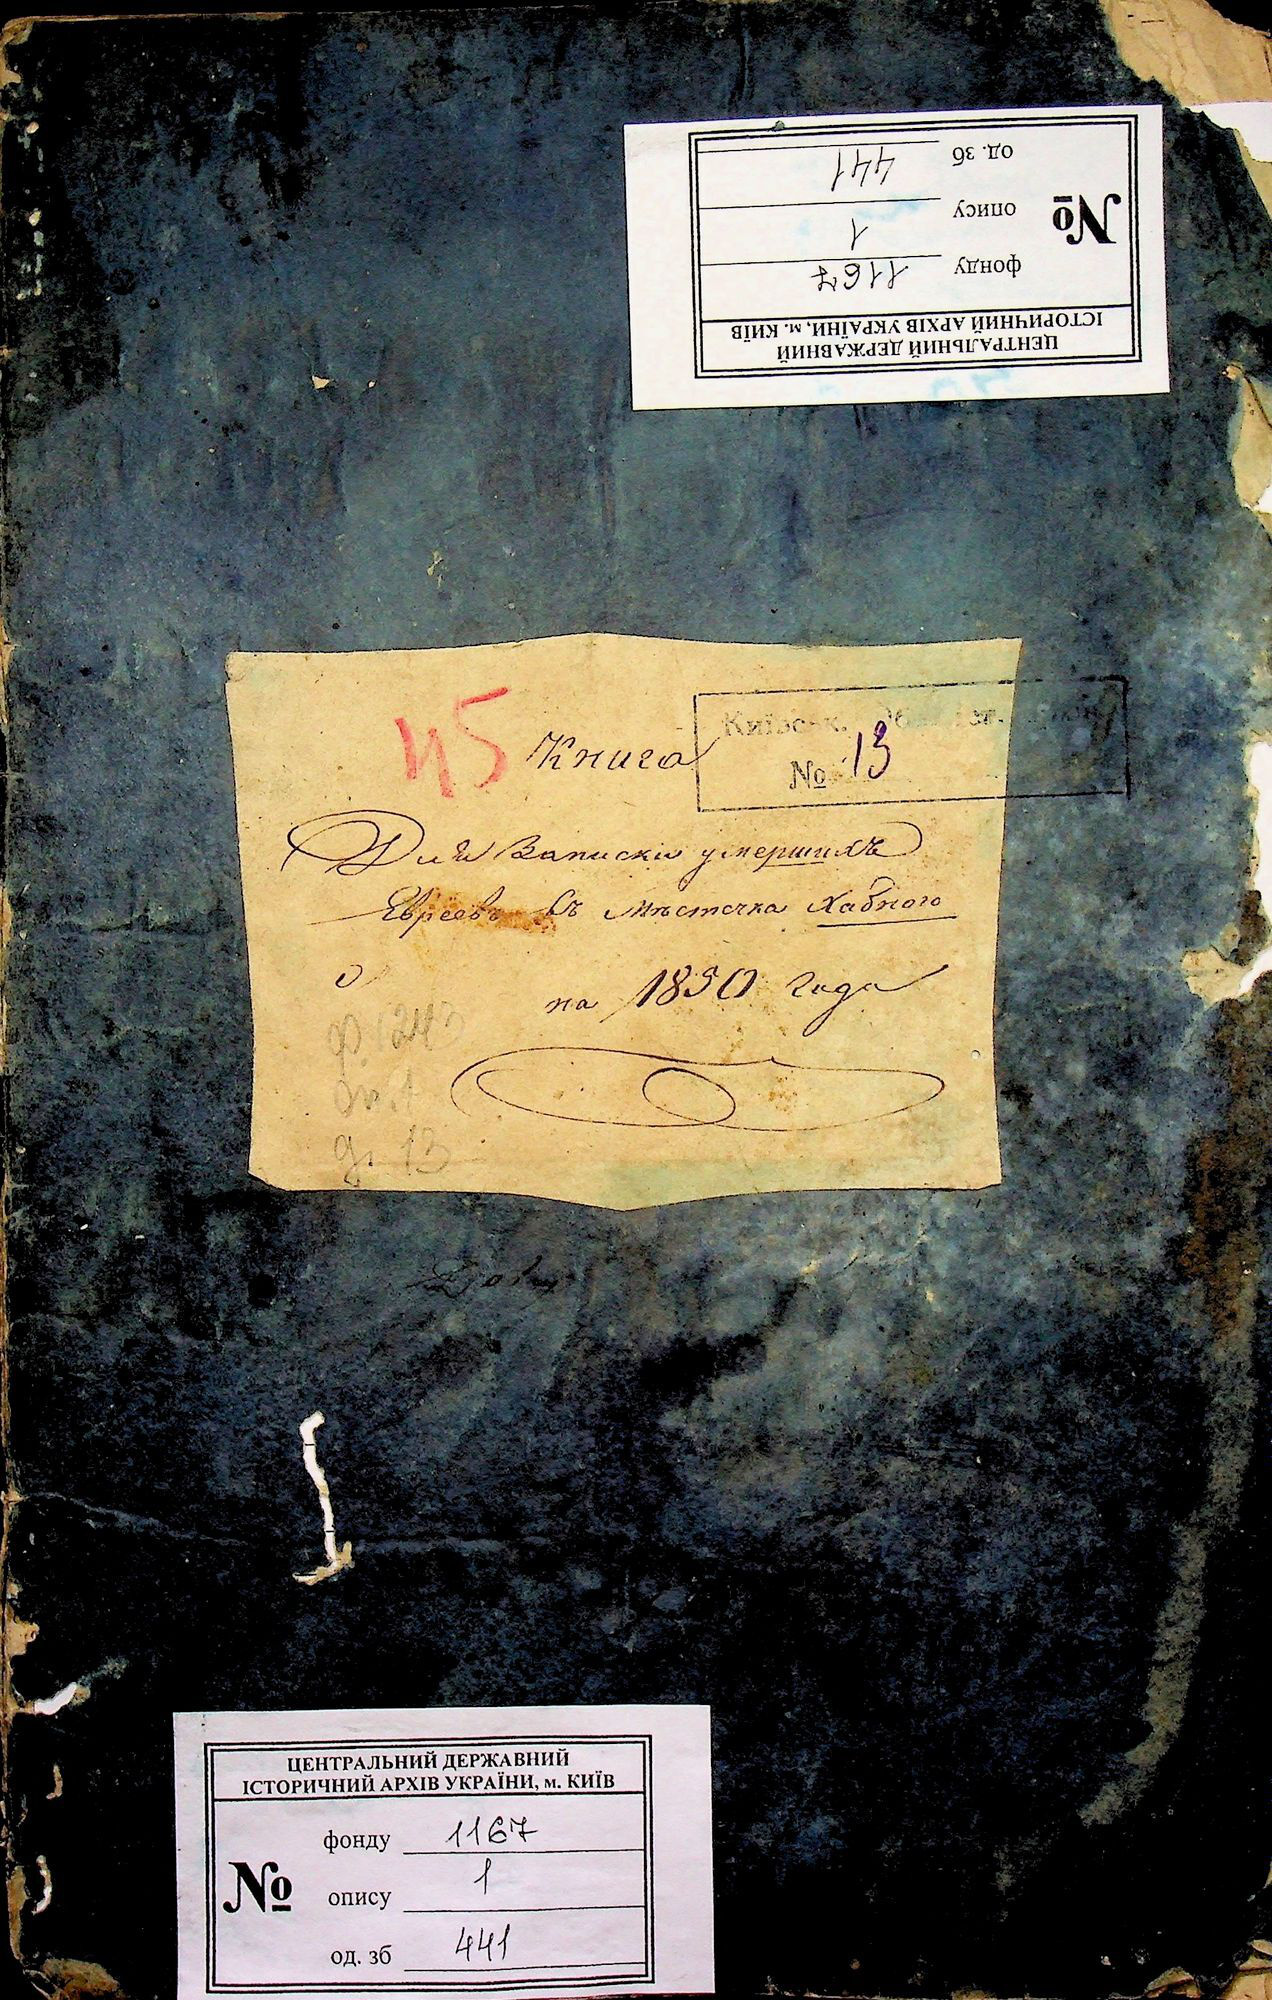 ЦЕНТРАЛЬНИЙ ДЕРЖАВНИЙ
ІСТОРИЧНИЙ АРХІВ УКРАЇНИ, м. КИЇВ
№
фонду 1167
опису 1
од. зб 441
45
Книга
№ 13
Для Записки умершихъ
Евреевъ въ мѣстечка Хабного
на 1850 года
оп. 1
д. 13
ЦЕНТРАЛЬНИЙ ДЕРЖАВНИЙ
ІСТОРИЧНИЙ АРХІВ УКРАЇНИ, м. КИЇВ
№
фонду 1167
опису 1
од. зб 441